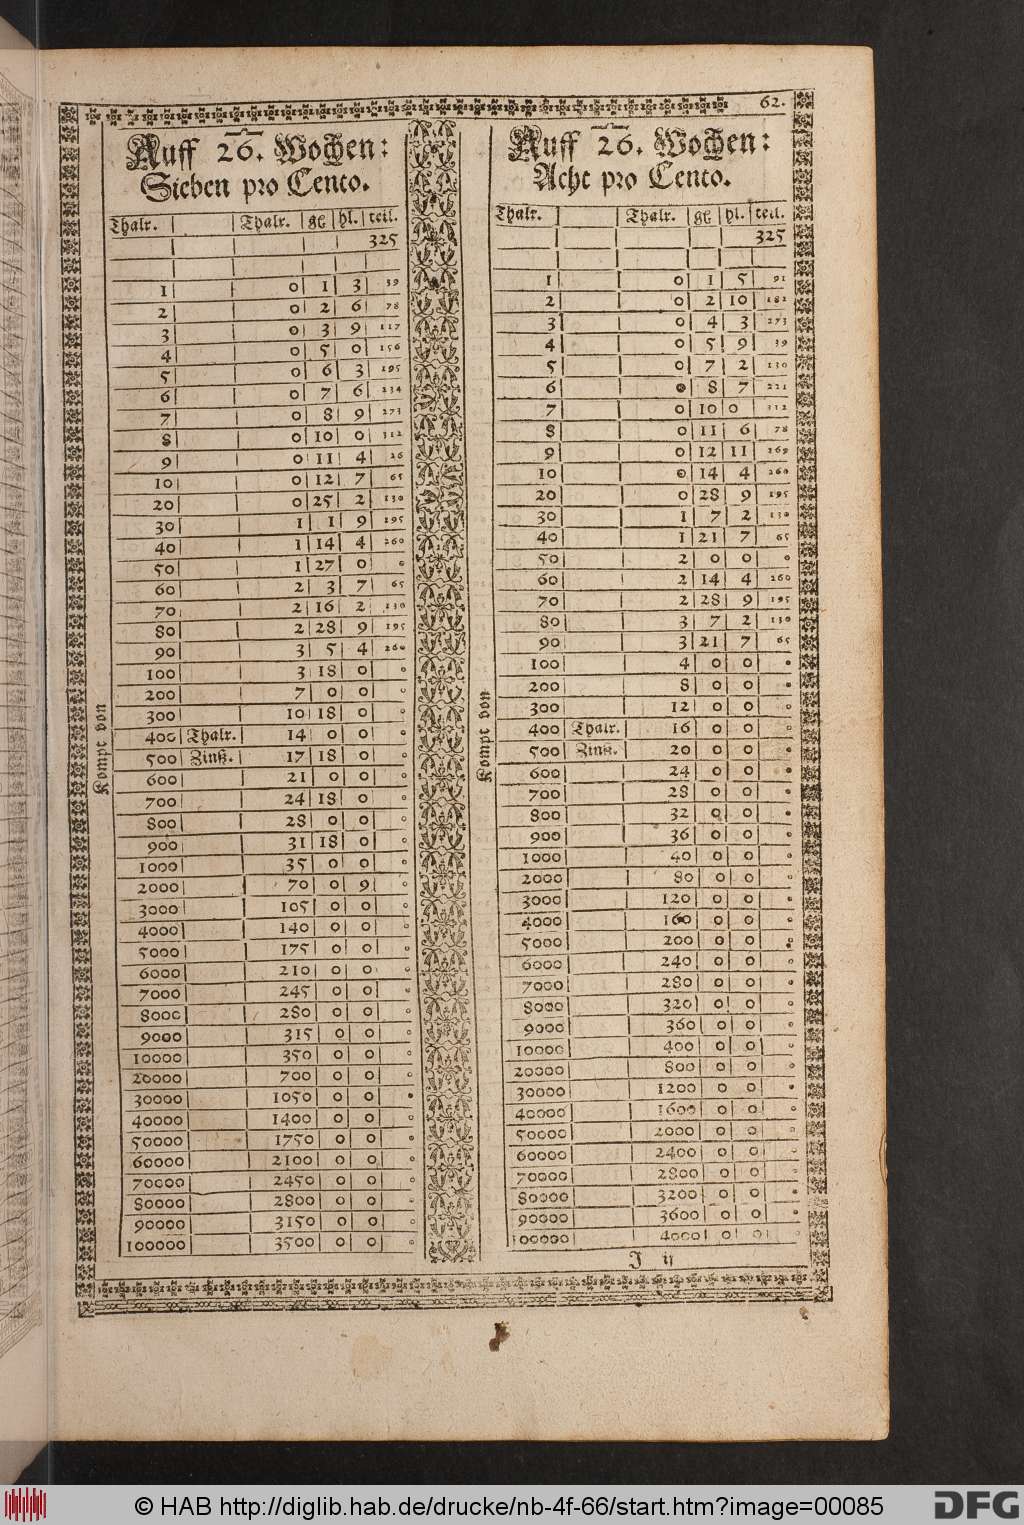 62.
Auff 26. Wochen:
Sieben pro Cento.
Thalr. Thalr. gl hl. teil.
325
1 0 1 3 39
2 0 2 6 78
3 0 3 9 117
4 0 5 0 156
5 0 6 3 195
6 0 7 6 234
7 0 8 9 273
8 0 10 0 312
9 0 11 4 26
10 0 12 7 65
20 0 25 2 130
30 1 1 9 195
40 1 14 4 260
50 1 27 0 0
60 2 3 7 65
70 2 16 2 130
80 2 28 9 195
90 3 5 4 260
100 3 18 0 0
200 7 0 0 0
300 10 18 0 0
400 Thalr. 14 0 0 0
500 Zinß. 17 18 0 0
600 21 0 0 0
700 24 18 0 0
800 28 0 0 0
900 31 18 0 0
1000 35 0 0 0
2000 70 0 9 0
3000 105 0 0 0
4000 140 0 0 0
5000 175 0 0 0
6000 210 0 0 0
7000 245 0 0 0
8000 280 0 0 0
9000 315 0 0 0
10000 350 0 0 0
20000 700 0 0 0
30000 1050 0 0 0
40000 1400 0 0 0
50000 1750 0 0 0
60000 2100 0 0 0
70000 2450 0 0 0
80000 2800 0 0 0
90000 3150 0 0 0
100000 3500 0 0 0
Kompt von
Auff 26. Wochen:
Acht pro Cento.
Thalr. Thalr. gl hl. teil.
325
1 0 1 5 91
2 0 2 10 182
3 0 4 3 273
4 0 5 9 39
5 0 7 2 130
6 0 8 7 221
7 0 10 0 312
8 0 11 6 78
9 0 12 11 169
10 0 14 4 260
20 0 28 9 195
30 1 7 2 130
40 1 21 7 65
50 2 0 0 0
60 2 14 4 260
70 2 28 9 195
80 3 7 2 130
90 3 21 7 65
100 4 0 0 0
200 8 0 0 0
300 12 0 0 0
400 Thalr. 16 0 0 0
500 Zinß. 20 0 0 0
600 24 0 0 0
700 28 0 0 0
800 32 0 0 0
900 36 0 0 0
1000 40 0 0 0
2000 80 0 0 0
3000 120 0 0 0
4000 160 0 0 0
5000 200 0 0 0
6000 240 0 0 0
7000 280 0 0 0
8000 320 0 0 0
9000 360 0 0 0
10000 400 0 0 0
20000 800 0 0 0
30000 1200 0 0 0
40000 1600 0 0 0
50000 2000 0 0 0
60000 2400 0 0 0
70000 2800 0 0 0
80000 3200 0 0 0
90000 3600 0 0 0
100000 4000 0 0 0
Kompt von
J ij
© HAB http://diglib.hab.de/drucke/nb-4f-66/start.htm?image=00085
DFG